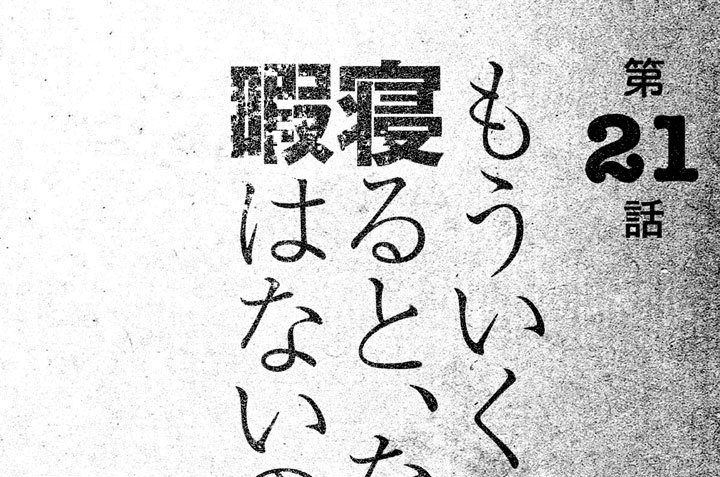 第21話
もういく
寝ると、な
暇はないの